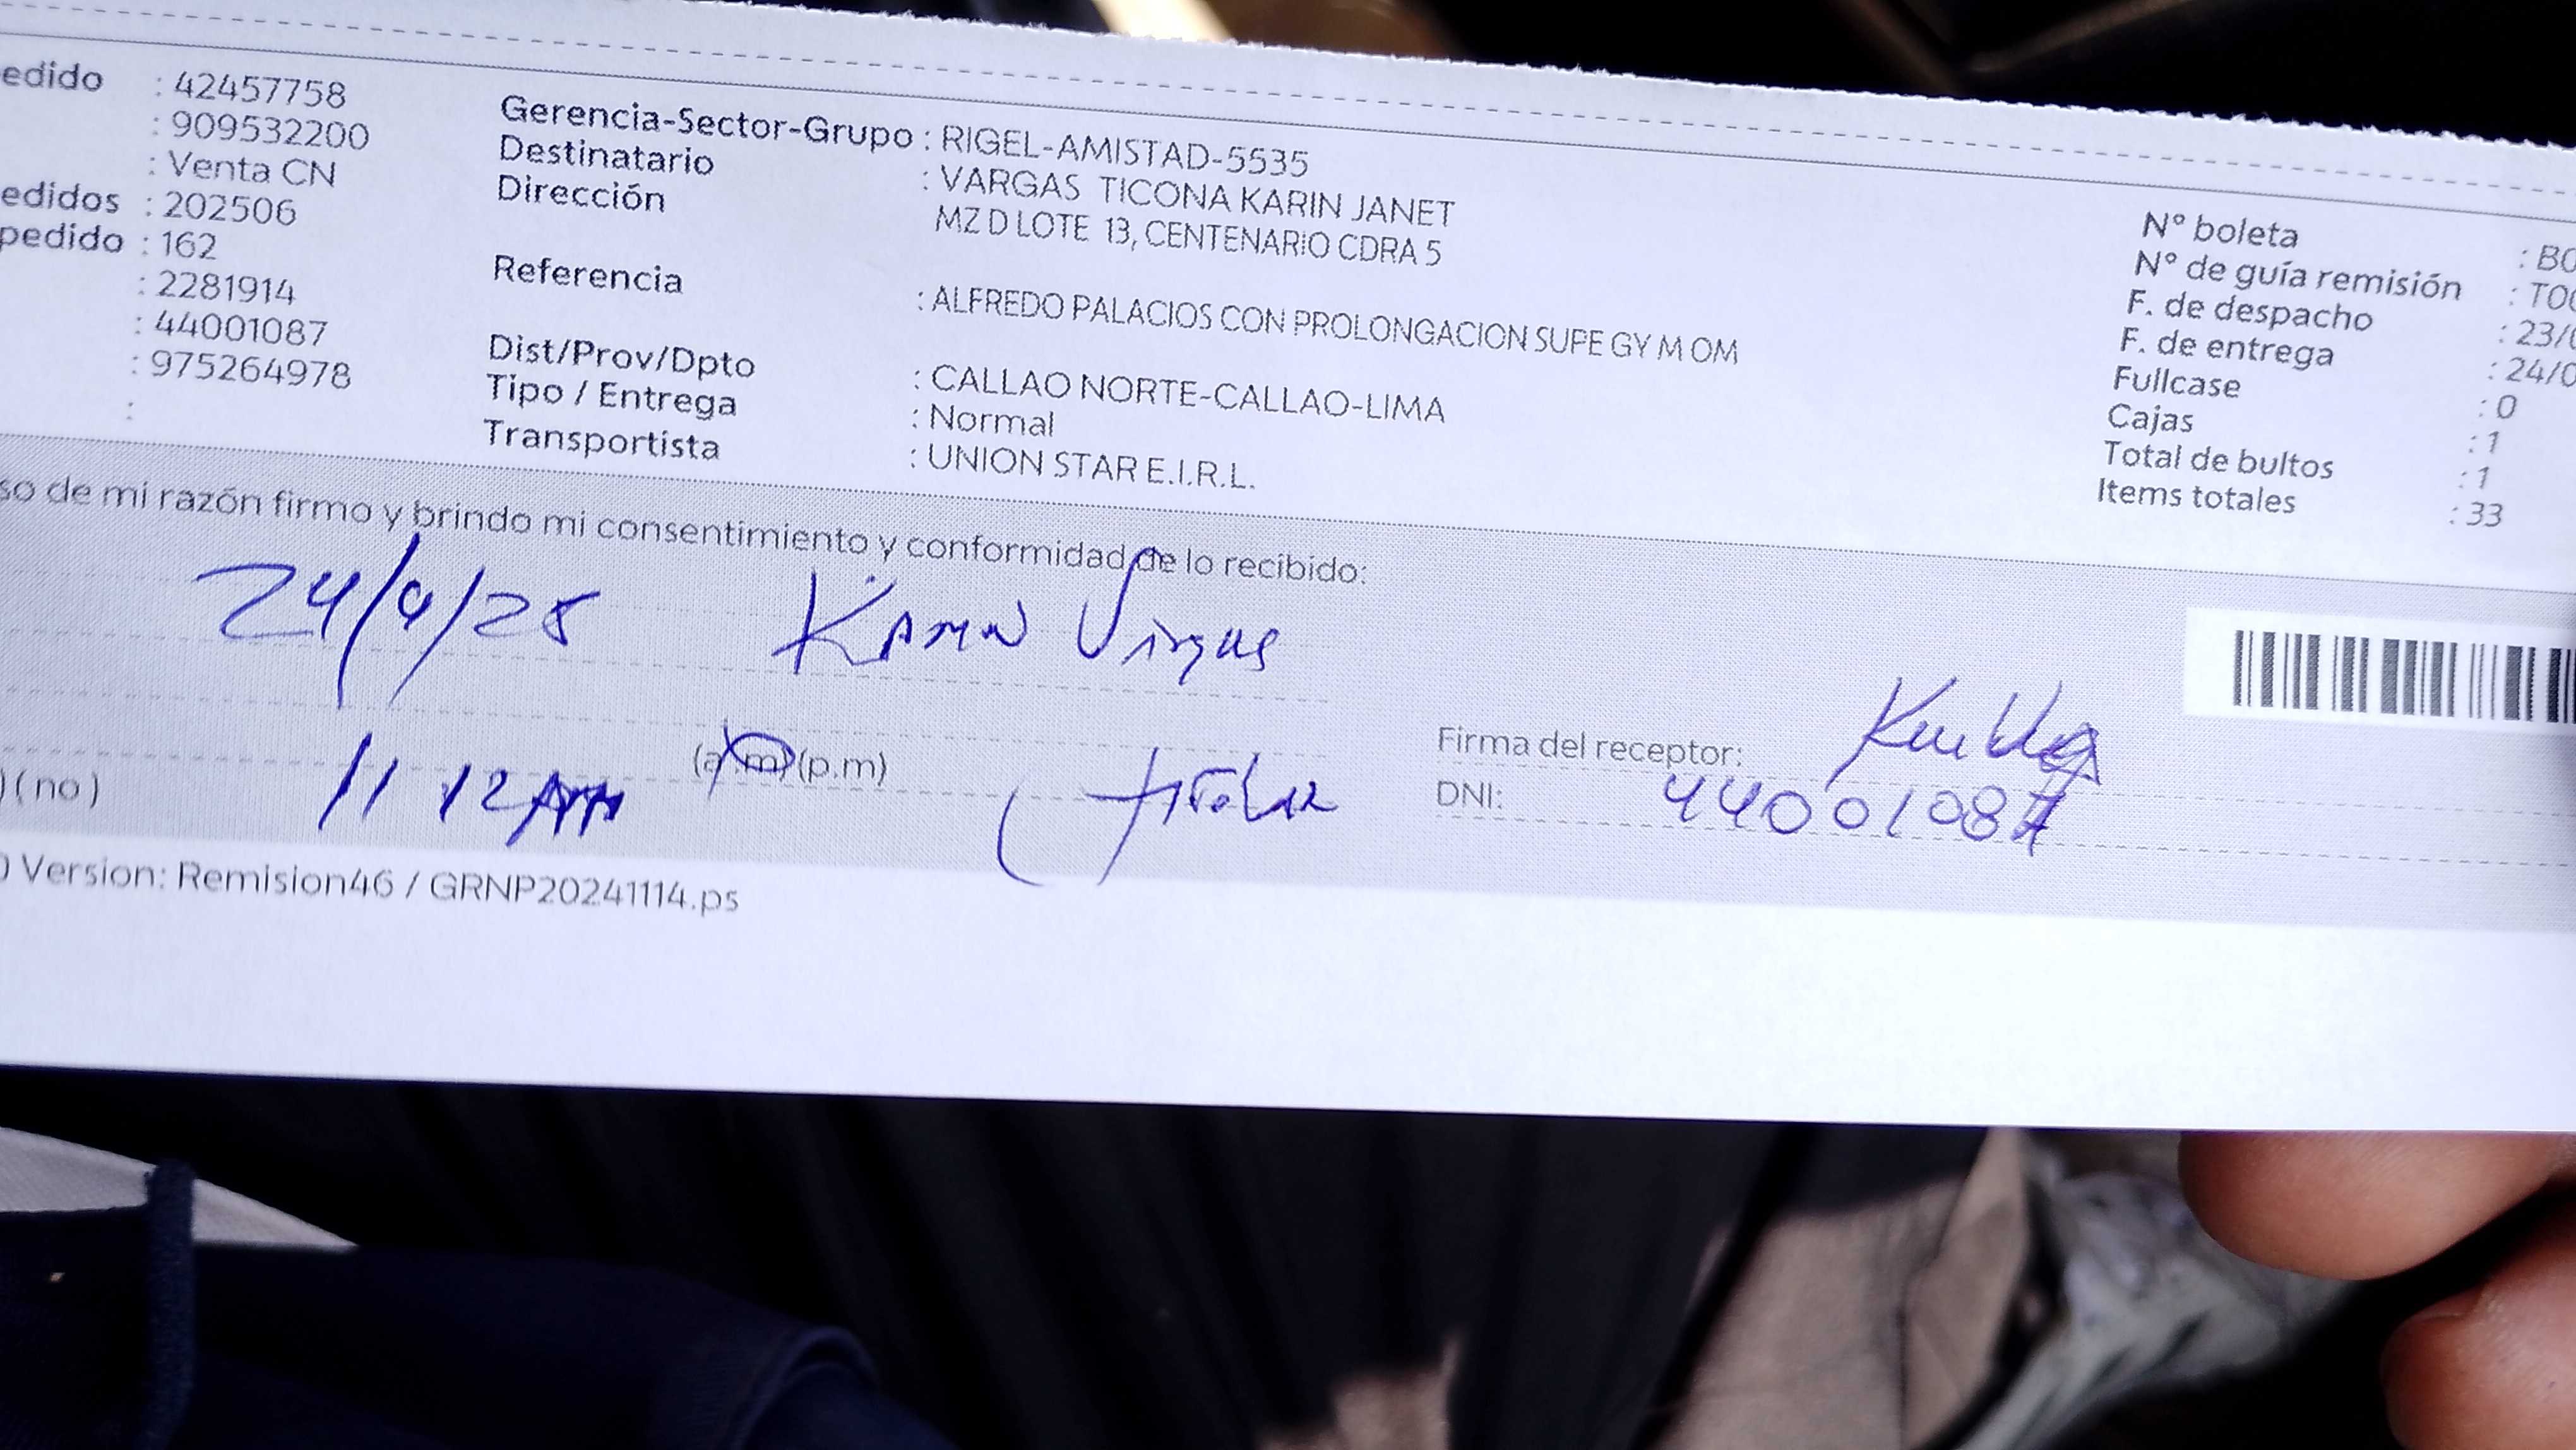 edido : 42457758
: 909532200
: Venta CN
edidos : 202506
pedido : 162
: 2281914
: 44001087
: 975264978
:
Gerencia-Sector-Grupo : RIGEL-AMISTAD-5535
Destinatario : VARGAS TICONA KARIN JANET
Dirección MZ D LOTE 13, CENTENARIO CDRA 5
Referencia : ALFREDO PALACIOS CON PROLONGACION SUPE GY M OM
Dist/Prov/Dpto : CALLAO NORTE-CALLAO-LIMA
Tipo / Entrega : Normal
Transportista : UNION STAR E.I.R.L.
N° boleta : B0
N° de guía remisión : T00
F. de despacho : 23/0
F. de entrega : 24/0
Fullcase : 0
Cajas : 1
Total de bultos : 1
Items totales : 33
so de mi razón firmo y brindo mi consentimiento y conformidad de lo recibido:
24/9/25 Karin Vargas
(a.m) (p.m)
) (no) 11 12 AM
Firma del receptor:
DNI: 44001087
) Version: Remision46 / GRNP20241114.ps